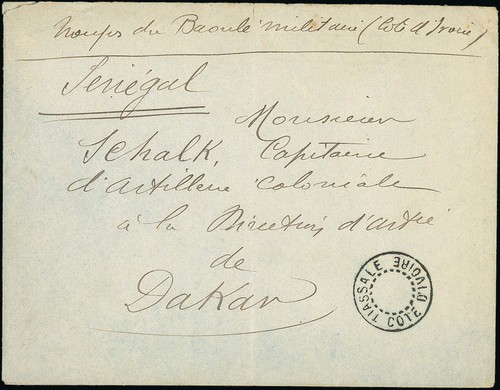 Troupes du Baoulé militaire (Côte d'Ivoire)
Sénégal
Monsieur
Schalk, Capitaine
d'artillerie coloniale
à la Direction d'artie
de
Dakar
TIASSALE COTE D'IVOIRE